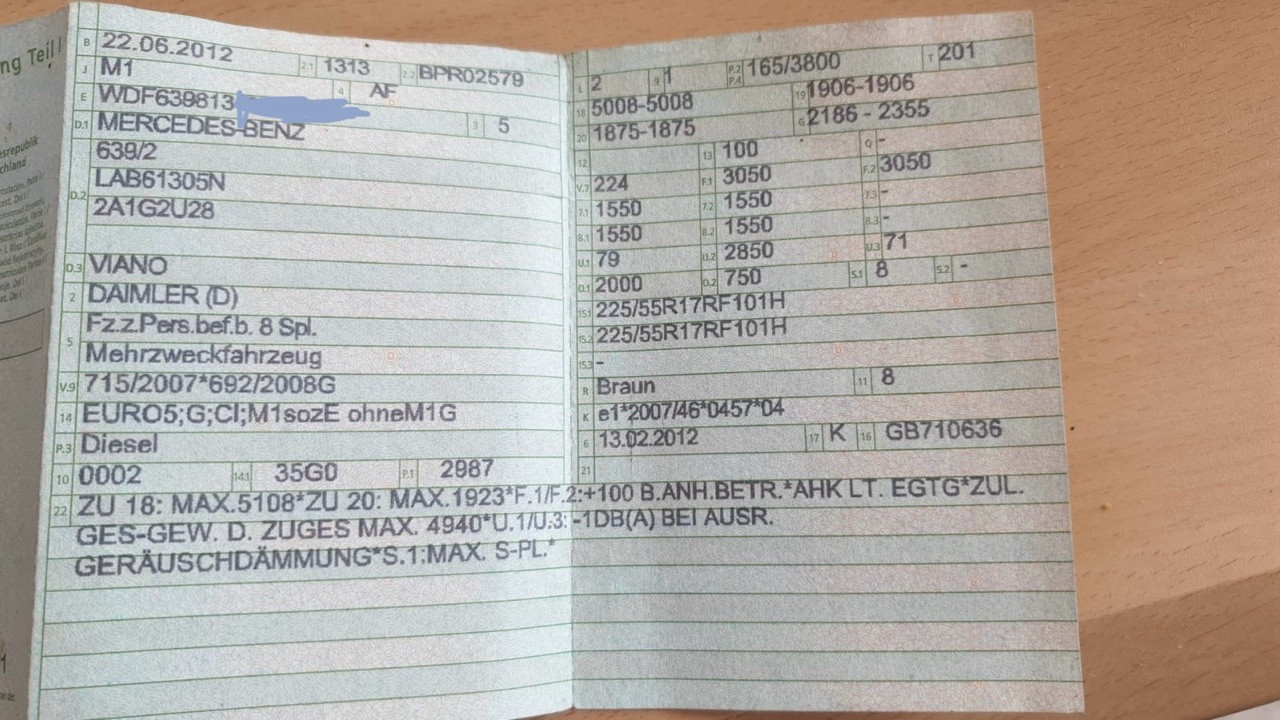 ng Teil I
esrepublik
chland
B 22.06.2012 2.1 1313 2.2 BPR02579
J M1 4 AF
E WDF639813
D.1 MERCEDES-BENZ 3 5
639/2
D.2 LAB61305N
2A1G2U28
D.3 VIANO
2 DAIMLER (D)
5 Fz.z.Pers.bef.b. 8 Spl.
Mehrzweckfahrzeug
V.9 715/2007*692/2008G
14 EURO5;G;CI;M1sozE ohneM1G
P.3 Diesel
10 0002 14.1 35G0 P.1 2987
L 2 9 1 P.2 P.4 165/3800 T 201
18 5008-5008 19 1906-1906
20 1875-1875 G 2186 - 2355
12 13 100 Q -
V.7 224 F.1 3050 F.2 3050
7.1 1550 7.2 1550 7.3 -
8.1 1550 8.2 1550 8.3 -
U.1 79 U.2 2850 U.3 71
O.1 2000 O.2 750 S.1 8 S.2 -
15.1 225/55R17RF101H
15.2 225/55R17RF101H
15.3 -
R Braun 11 8
K e1*2007/46*0457*04
6 13.02.2012 17 K 16 GB710636
21
22 ZU 18: MAX.5108*ZU 20: MAX.1923*F.1/F.2:+100 B.ANH.BETR.*AHK LT. EGTG*ZUL.
GES-GEW. D. ZUGES MAX. 4940*U.1/U.3: -1DB(A) BEI AUSR.
GERÄUSCHDÄMMUNG*S.1:MAX. S-PL.*